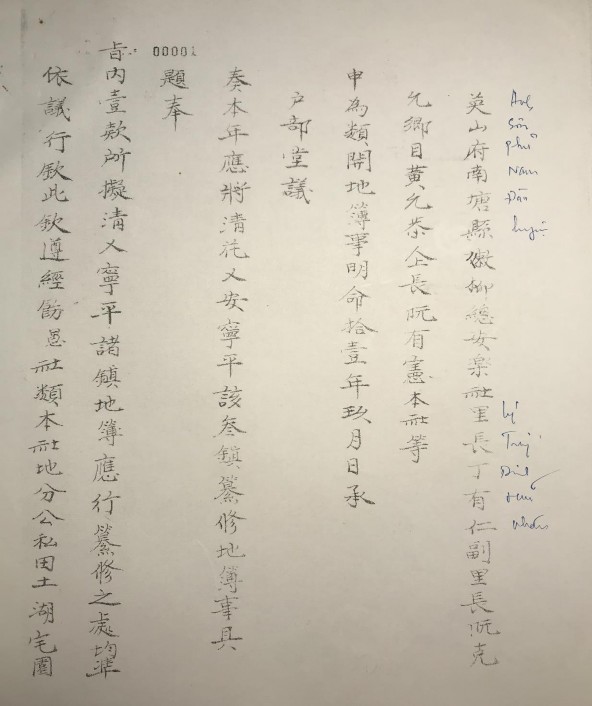 Anh
Sơn
phủ
Nam
Đàn
huyện
lý
Trưởng
Đinh
Hữu
nhân
英山府南塘縣 總安樂社里長丁有仁副里長阮克
允鄉目黃允恭仝長阮有憲本社等
申為類開地簿事明命拾壹年玖月日承
戶部堂議
奏本年應將清花乂安寧平該叁鎮纂修地簿事具
題奉
旨內壹款所擬清乂寧平諸鎮地簿應行纂修之處均準
依議行欽此欽遵經飭 社類本社地分公私田土湖宅園
00001